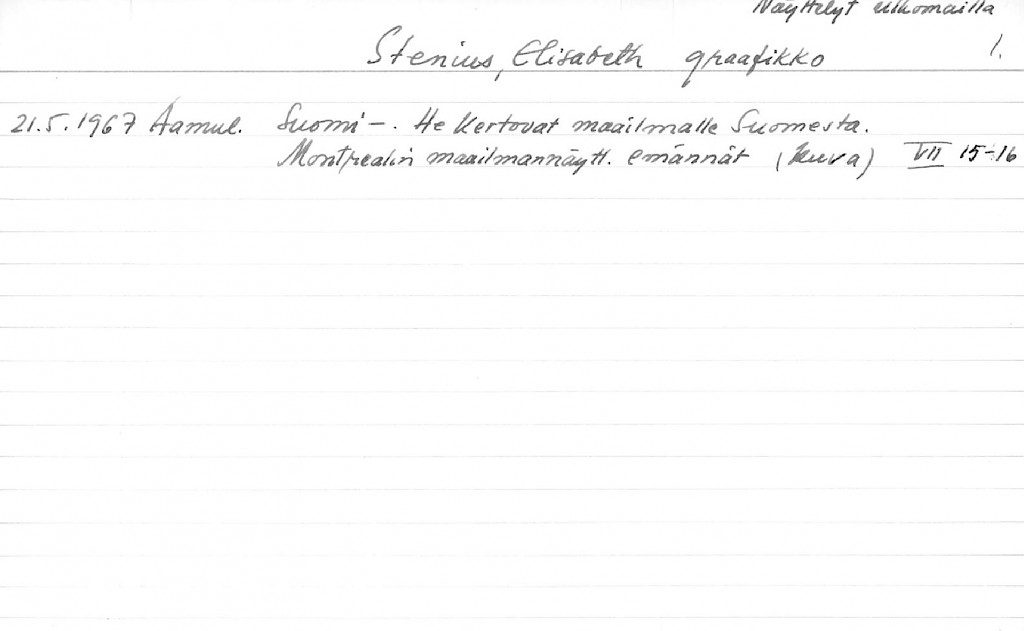 Näyttelyt ulkomailla
Stenius, Elisabeth graafikko 1.
21.5.1967 Aamul. Suomi -. He kertovat maailmalle Suomesta.
Montrealin maailmannäytt. emännät (kuva) VII 15-16